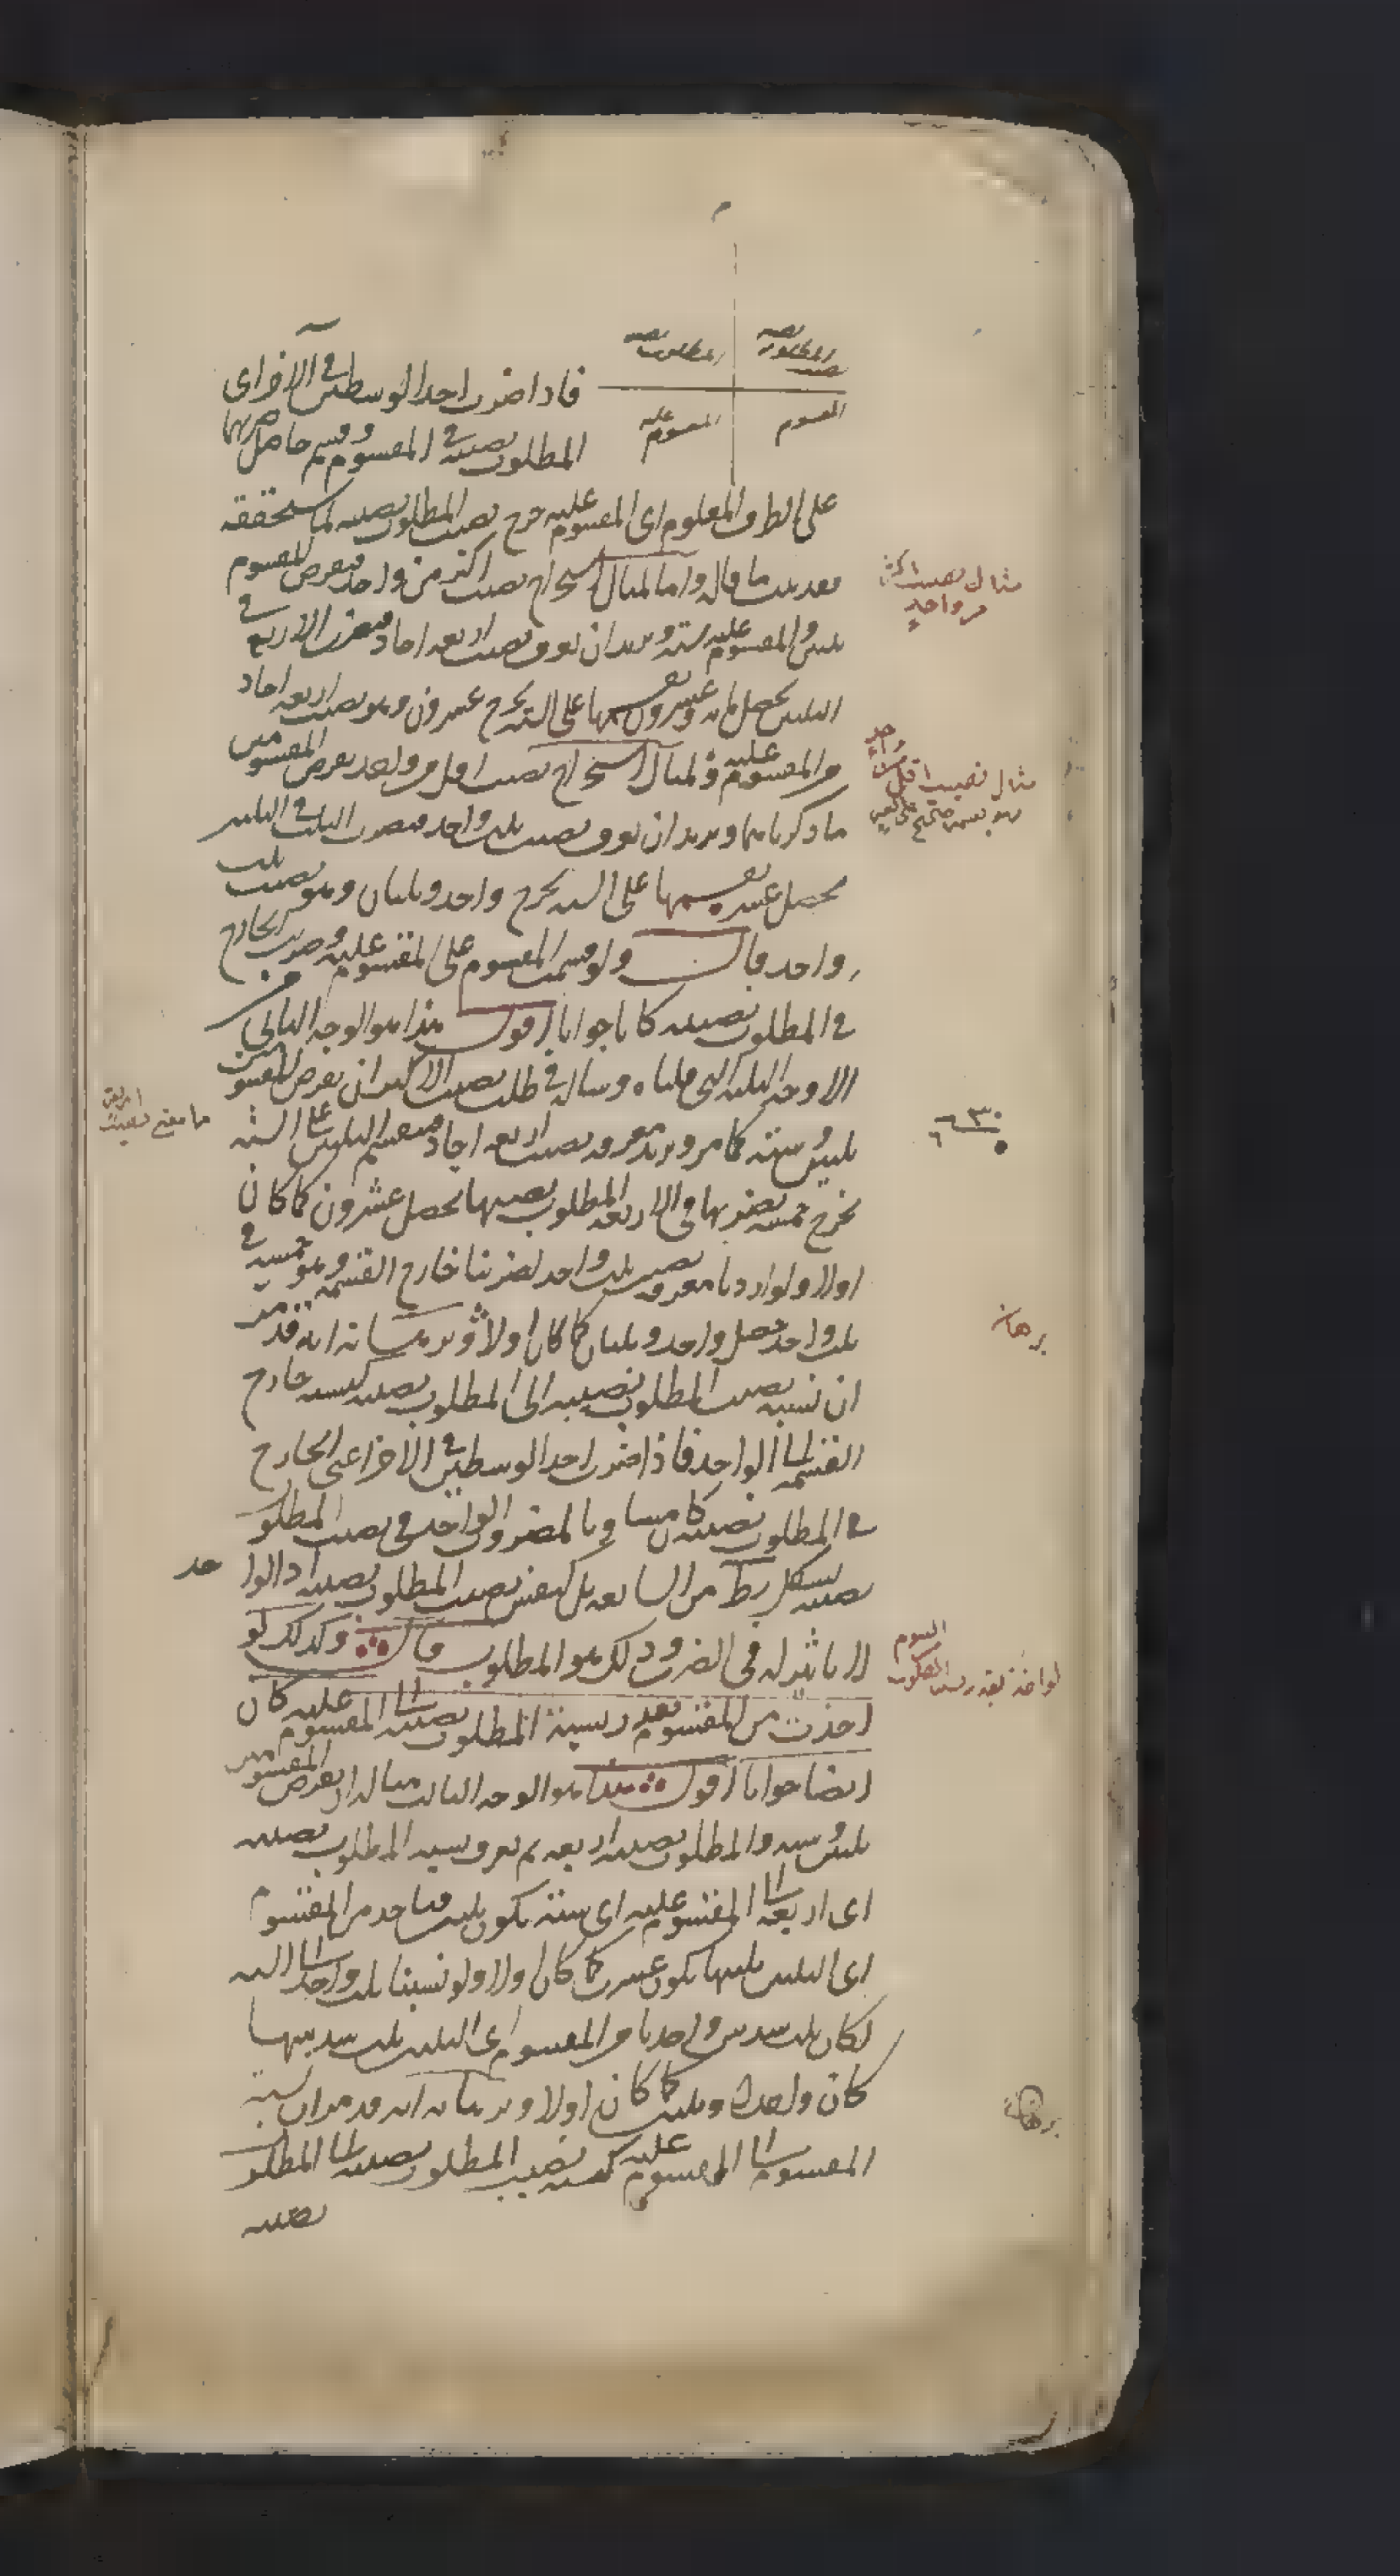 نصيب المطلوب نصيبه
المطلوب نصيبه
المقسوم
المقسوم عليه
فاذا ضرب احد الوسطين في الآخر اى
المطلوب نصيبه في المقسوم وقسم حاصل ضربهما
على الطرف المعلوم اى المقسوم عليه خرج نصيب المطلوب نصيبه لما ستحققه
فقد ثبت ما قاله واما المثال لاستخراج نصيب اكثر من واحد فيفرض المقسوم
ثلثين والمقسوم عليه ستة ونريد ان نعرف نصيب اربعة احاد فيضرب الاربع في
الثلثين يحصل مائة وعشرون نقسمها على الستة يخرج عشرون وهو نصيب اربعة احاد
من المقسوم عليه ولمثال استخراج نصيب اقل من واحد نفرض المقسومين
ما ذكرناهما ونريد ان نعرف نصيب ثلث واحد فيضرب الثلث في الثلثين
يحصل عشرة نقسمها على الستة يخرج واحد وثلثان وهو نصيب ثلث
واحد قال ولو قسمت المقسوم على المقسوم عليه وضربت الخارج
في المطلوب نصيبه كان جوابا اقول هذا هو الوجه الثاني من
الاوجه الثلثة التى قلناه ومثاله في طلب نصيب الاكثر ان نفرض المقسومين
ثلثين وستة كما مر ونريد معرفة نصيب اربعة احاد فيقسم الثلثين على الستة
يخرج خمسة نضربها في الاربعة المطلوب نصيبها يحصل عشرون كما كان
اولا ولو اردنا معرفة نصيب ثلث واحد لضربنا خارج القسمة وهو خمسة في
ثلث واحد حصل واحد وثلثان كما كان اولا وبرهانه انه قد مر
ان نسبة نصيب المطلوب نصيبه الى المطلوب نصيبه كنسبة خارج
القسمة الى الواحد فاذا ضرب احد الوسطين في الآخر اعنى الخارج
في المطلوب نصيبه كان مساويا لمضروب الواحد في نصيب المطلوب
نصيبه بشكل يط من السابعة بل كنفس نصيب المطلوب نصيبه اذ الواحد
لا تاثير له في الضرب وذلك هو المطلوب قال وكذلك لو
اخذت من المقسوم بقدر نسبة المطلوب نصيبه الى المقسوم عليه كان
ايضا جوابا اقول هذا هو الوجه الثالث مثاله ان نفرض المقسومين
ثلثين وستة والمطلوب نصيبه اربعة ثم نعرف نسبة المطلوب نصيبه
اى اربعة الى المقسوم عليه اى ستة يكون ثلثيه فناخذ من المقسوم
اى الثلثين ثلثيها يكون عشرين كما كان اولا ولو نسبنا ثلث واحد الى الستة
لكان ثلث سدس واخذنا من المقسوم اى الثلثين ثلث سدسها
كان واحدا وثلثين كما كان اولا وبرهانه انه قد مر ان نسبة
المقسوم الى المقسوم عليه كنسبة نصيب المطلوب نصيبه الى المطلوب
نصيبه
مثال نصيب اكثر
من واحد
مثال نصيب اقل من واحد
٣٠
٦
برهان
برهانه